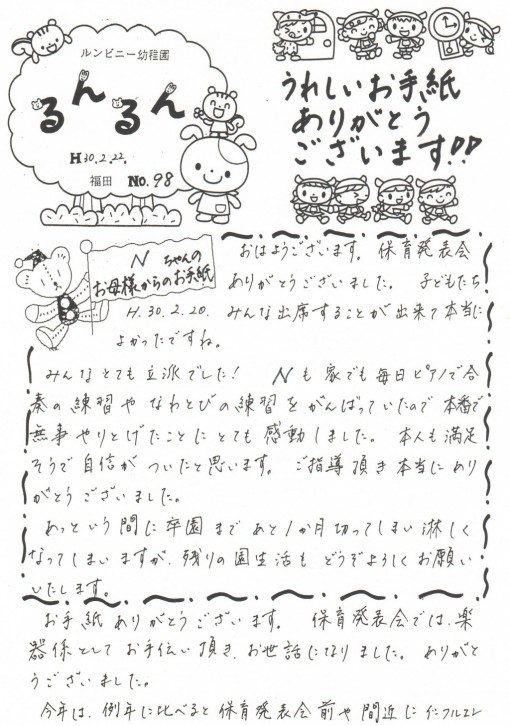 ルンビニー幼稚園
るんるん
H30.2.22.
福田 No.98
うれしいお手紙
ありがとう
ございます!!
N ちゃんの
お母様からのお手紙
H.30.2.20.
おはようございます。 保育発表会
ありがとうございました。 子どもたち
みんな出席することが出来て本当に
よかったですね。
みんなとても立派でした! Nも家でも毎日ピアノで合
奏の練習や なわとびの練習をがんばっていたので本番で
無事やりとげたことにとても感動しました。 本人も満足
そうで自信がついたと思います。 ご指導頂き本当にあり
がとうございました。
あっという間に卒園まであと1か月切ってしまい淋しく
なってしまいますが、残りの園生活もどうぞよろしくお願い
いたします。
お手紙ありがとうございます。 保育発表会では、楽
器係としてお手伝い頂き、お世話になりました。ありがと
うございました。
今年は、例年に比べると保育発表会前や間近にインフルエン